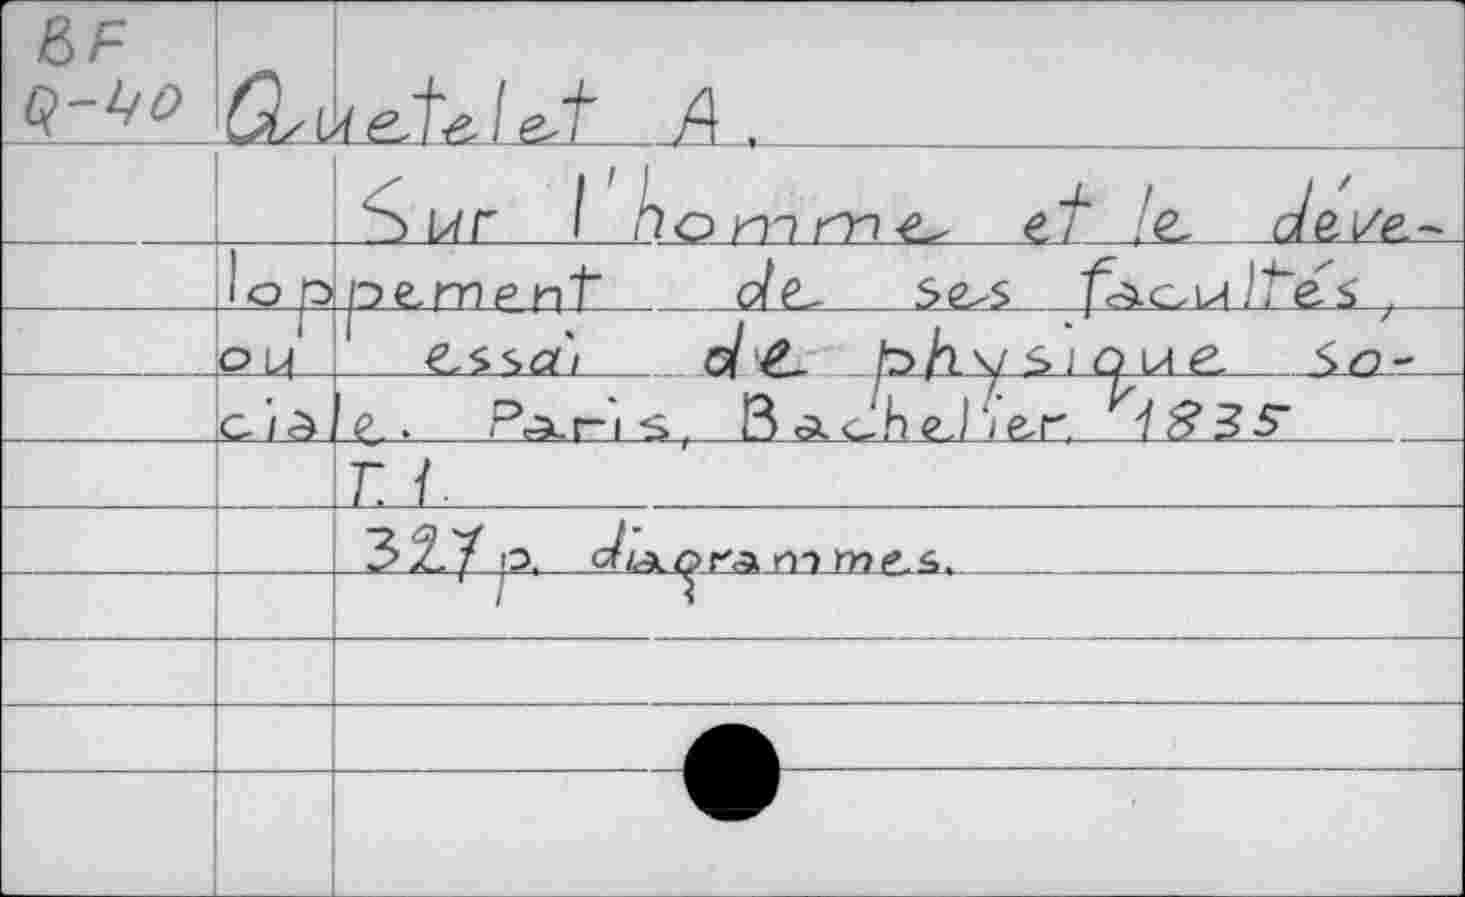 BF
Q-40 Quetelet A.
Sur l'homme et le déve-
loppement de ses facultés,
ou essai de physique so-
ciale. Paris, Bachelier, 1835
T. 1.
327 p. diagrammes.